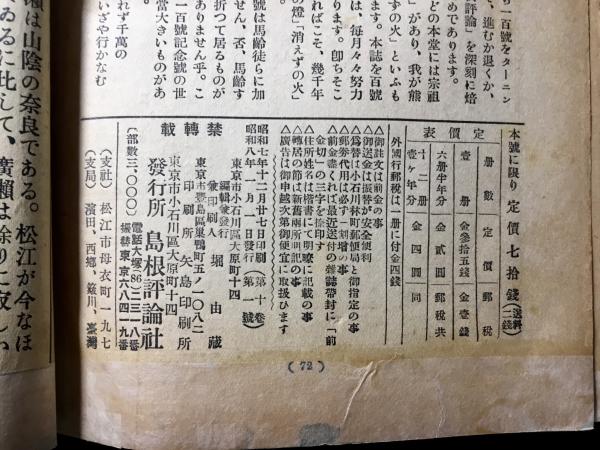 ら一百號をターニン
、進むか退くか、
評論」を深刻に焙
めであります。
どの本堂には宗祖
」があり、我が熊
ずの火」といふも
は、毎月々々努力
ります。本誌を百號
ればこそ、幾千年
の燈」「消えずの火」
號は馬齢徒らに加
折つて居るものが
せん、否、馬齢す
ありません乎。こ
一百號記念號の世
當大きいものがあ
れず千萬の
いざや行かなむ
瀬は山陰の奈良である。松江が今なほ
ゐるに比して、廣瀬は餘りに寂しい
本號に限り 定價七拾錢（送料二錢）
定價表
册數 定價 郵税
壹册 金參拾五錢 金壹錢
六册半年分 金貳圓 郵税共
十二册壹ヶ年分 金四圓 同
外國行郵税は一册に付金四錢
△御註文は前金の事
△御送金は振替が安全便利
△爲替は小石川林町郵便局と御指定の事
△郵券代用は必ず一割増の事
△前金盡くれば最近送付の雜誌帶封に「前
金切」の三字を捺印す
△住所姓名は楷書にて明瞭に記載の事
△轉居の節は新舊兩所明記の事
△廣告は御申越次第御便宜に取扱ひます
昭和七年十二月廿七日印刷（第十卷）
昭和八年一月一日發行（第一號）
東京市小石川區大原町十四
編輯兼發行兼印刷人 堀由藏
東京市豊島區巣鴨町五ノ一〇八二
印刷所 矢島印刷所
東京市小石川區大原町十四
禁轉載
發行所 島根評論社
電話大塚(86)二三一八番
振替東京六八四一九番
（部數三、〇〇〇）
（支社）松江市母衣町一九七
（支局）濱田、西郷、簸川、臺灣
(72)